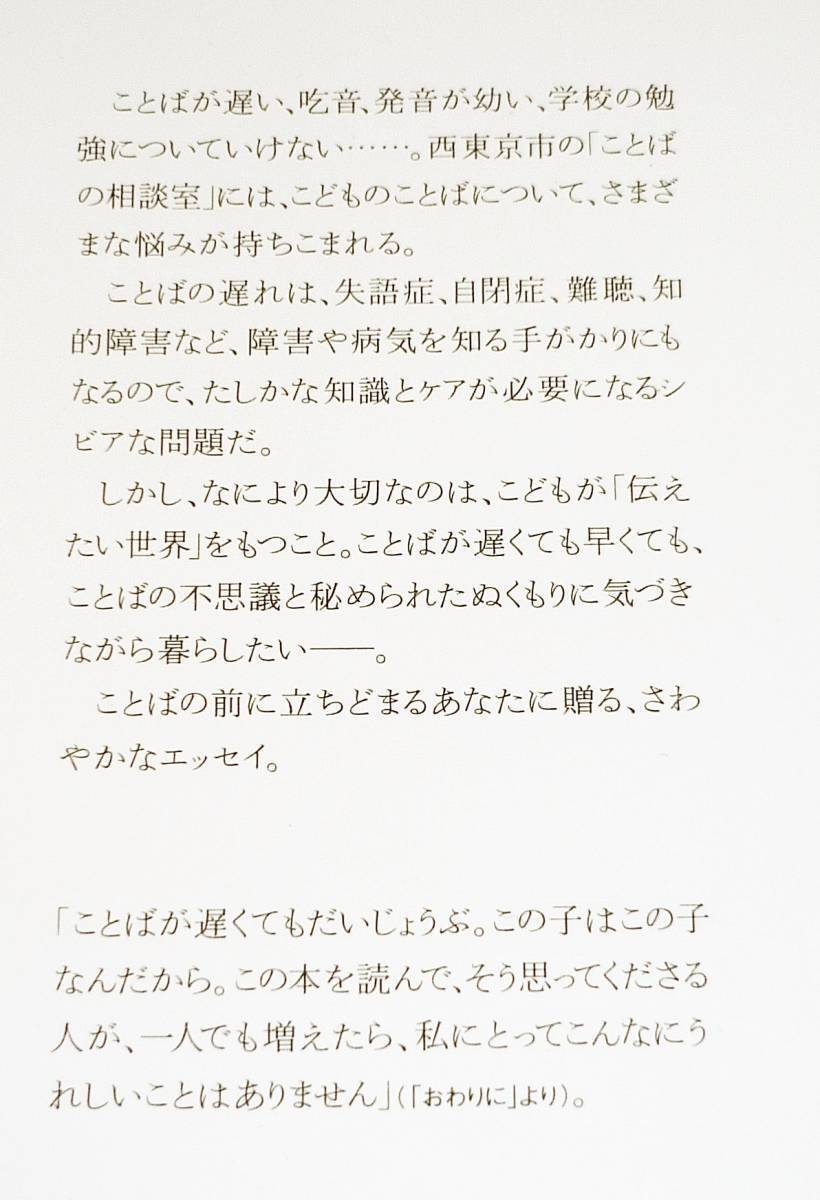 ことばが遅い、吃音、発音が幼い、学校の勉
強についていけない……。西東京市の「ことば
の相談室」には、こどものことばについて、さまざ
まな悩みが持ちこまれる。
　ことばの遅れは、失語症、自閉症、難聴、知
的障害など、障害や病気を知る手がかりにも
なるので、たしかな知識とケアが必要になるシ
ビアな問題だ。
　しかし、なにより大切なのは、こどもが「伝え
たい世界」をもつこと。ことばが遅くても早くても、
ことばの不思議と秘められたぬくもりに気づき
ながら暮らしたい――。
　ことばの前に立ちどまるあなたに贈る、さわ
やかなエッセイ。
「ことばが遅くてもだいじょうぶ。この子はこの子
なんだから。この本を読んで、そう思ってくださる
人が、一人でも増えたら、私にとってこんなにう
れしいことはありません」（「おわりに」より）。